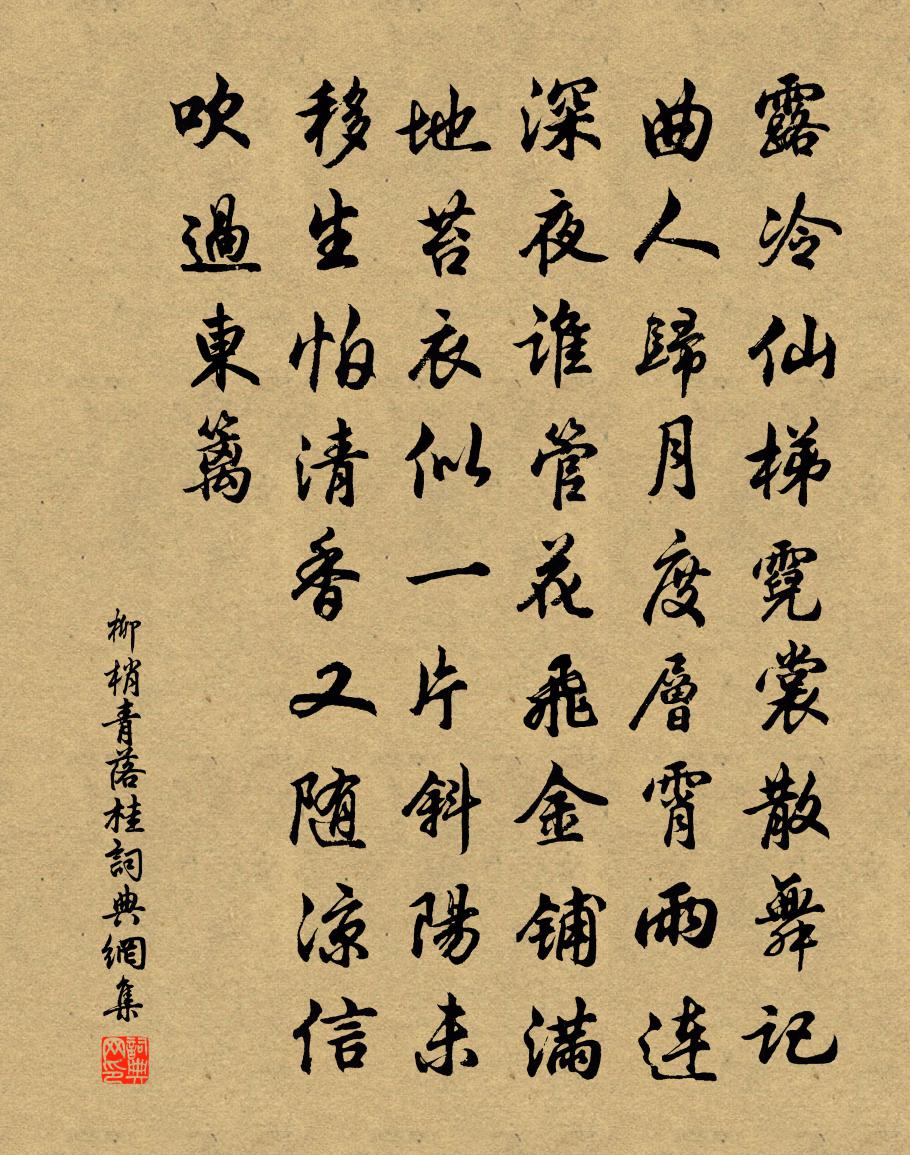 露冷仙梯霓裳散舞記
曲人歸月度層霄雨連
深夜誰管花飛金鋪滿
地苔衣似一片斜陽未
移生怕清香又随凉信
吹過東籬
柳梢青落桂詞典網集
詞典网印